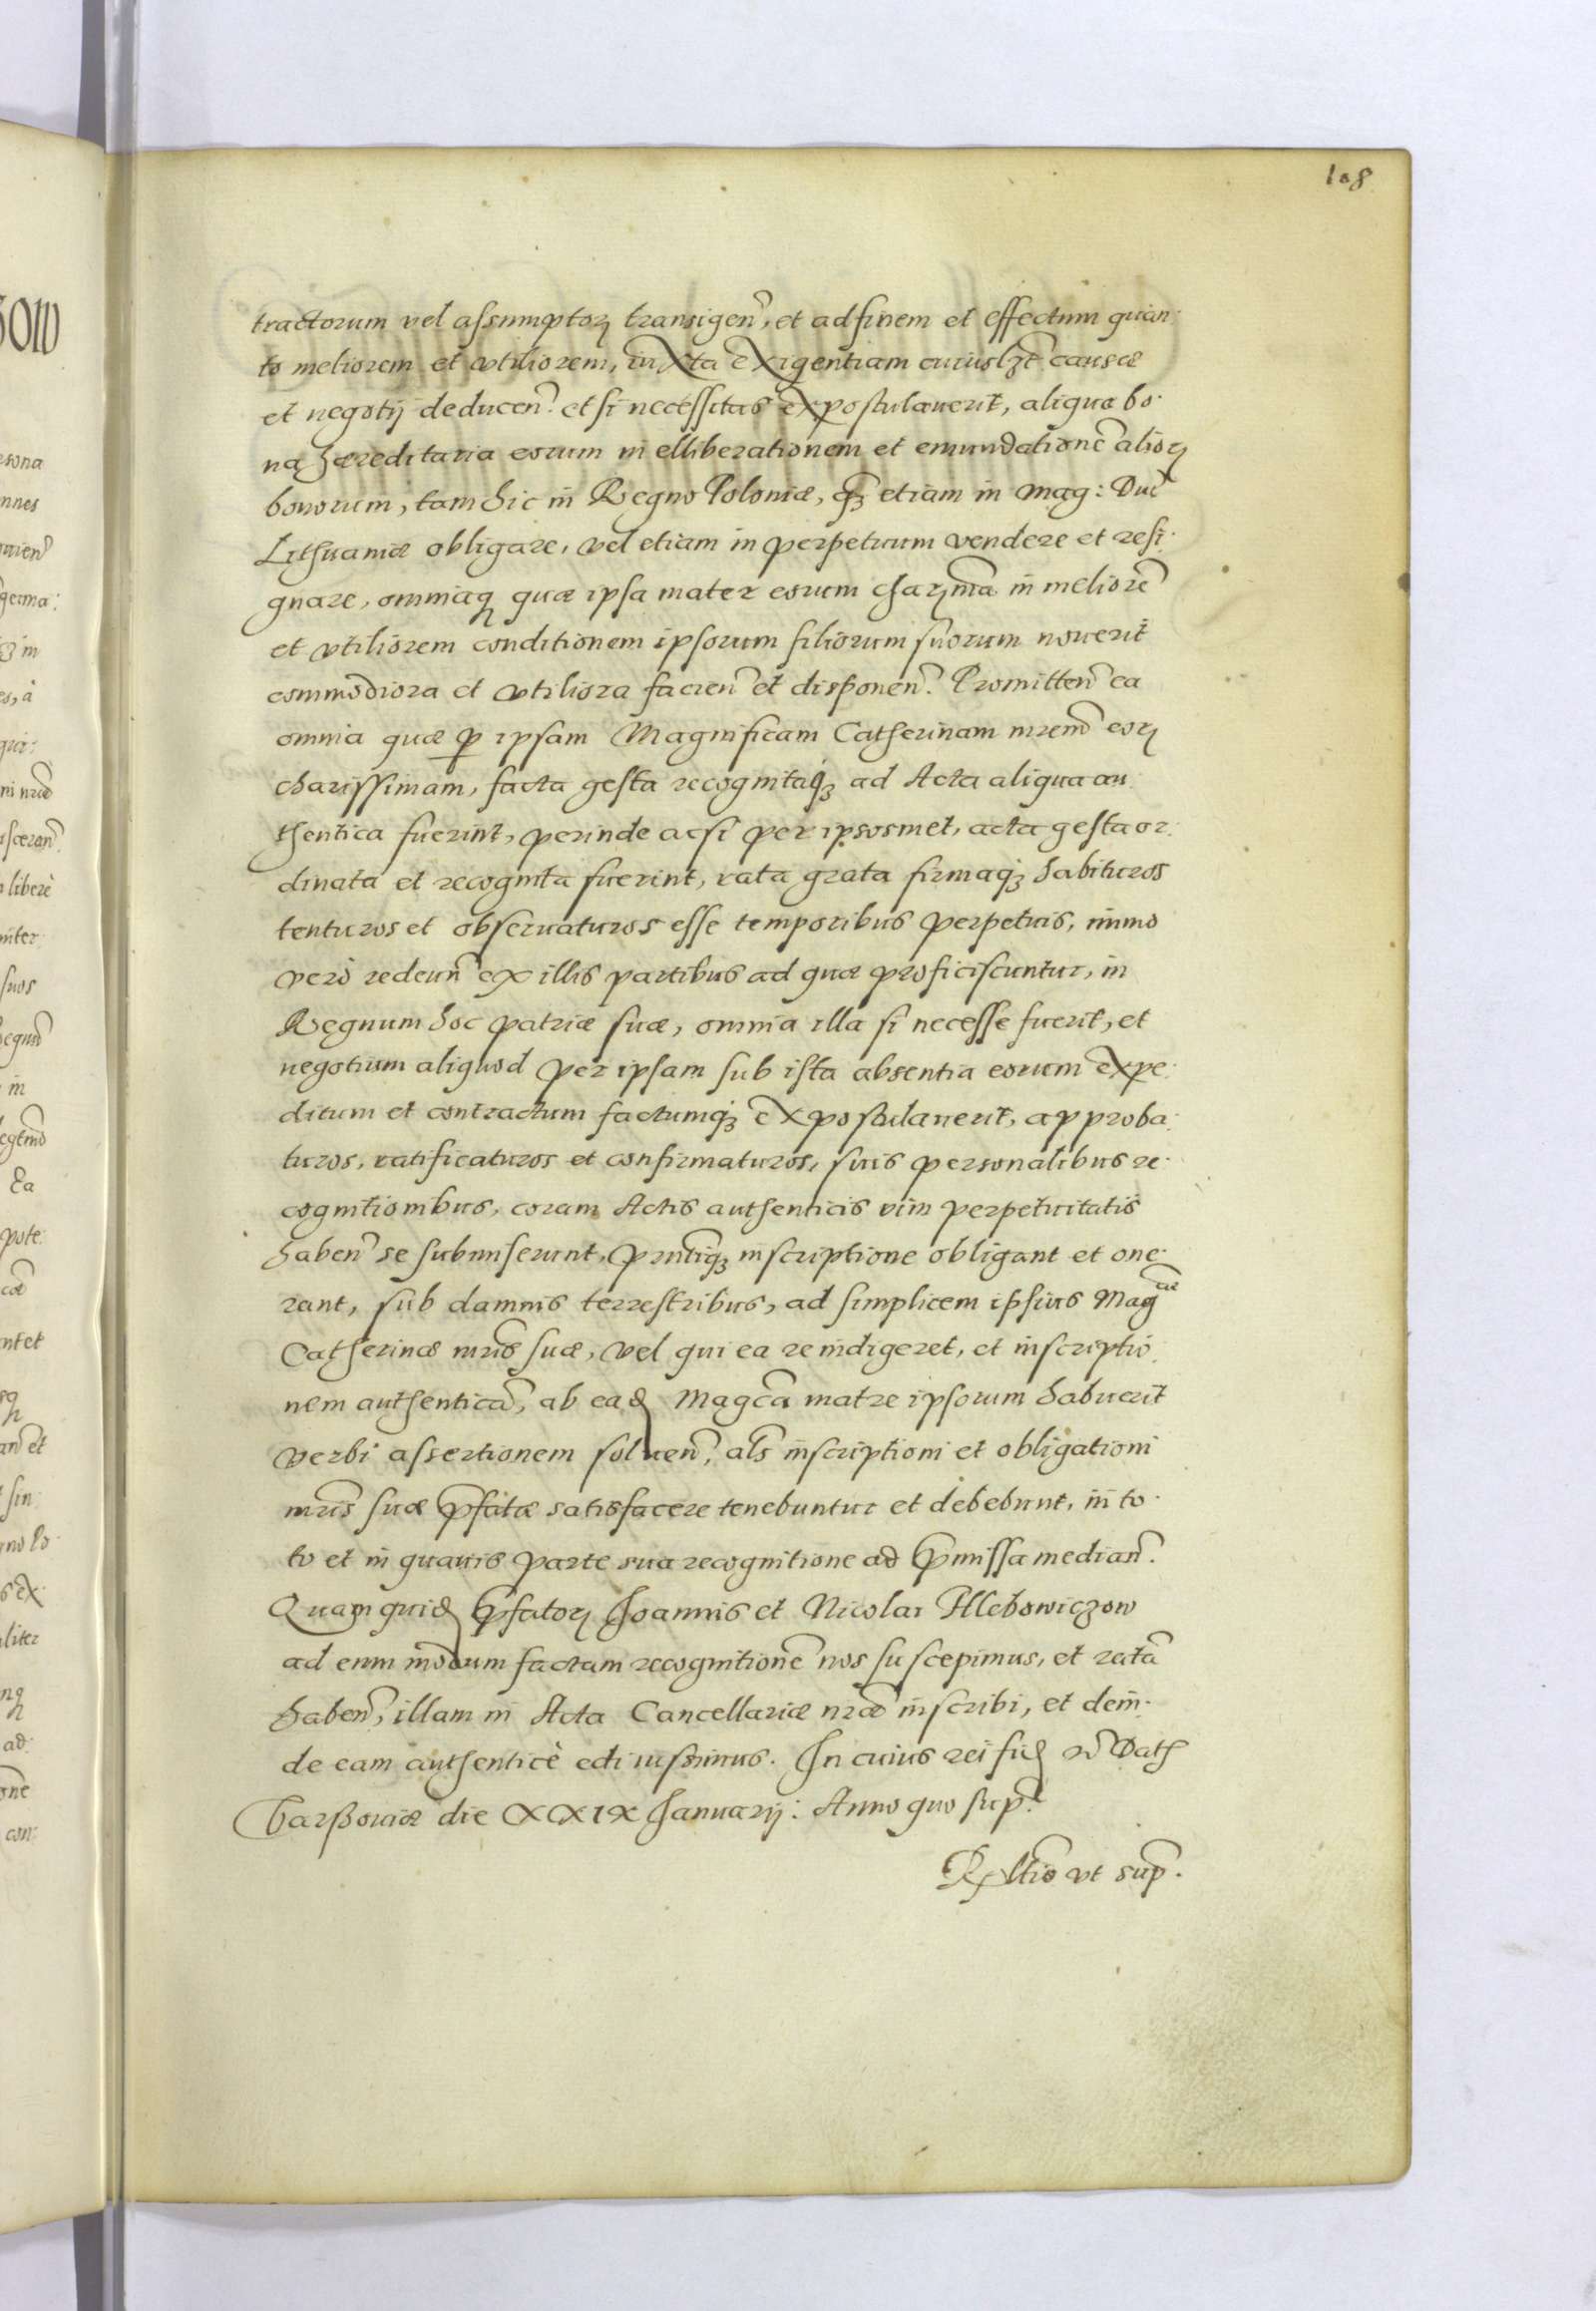 108
tractorum vel assumptorꝫ transigen̄, et ad finem et effectum quan
to meliorem et vtiliorem, iuxta exigentiam cuiuslꝫt causæ
et negotij deducen̄. et si necessitas expostulauerit, aliqua bo
na hæreditaria eorum in elliberationem et emundationē aliorꝫ
bonorum, tam hic in Regno Poloniæ, qꝫ etiam in Mag: Duc̄
Lithuaniæ obligare, vel etiam in perpetuum vendere et resi
gnare, omniaqꝫ quæ ipsa mater eorum charꝫma in meliorē
et vtiliorem conditionem ipsorum filiorum suorum nouerit
commodiora et vtiliora facien̄ et disponen̄. Promitten̄ ea
omnia quæ ꝑ ipsam Magnificam Catherinam mrem̄ eorꝫ
charissimam, facta gesta recognitaqꝫ ad Acta aliqua au
thentica fuerint, perinde acsi per ipsosmet, acta gesta or
dinata et recognita fuerint, rata grata firmaqꝫ habituros
tenturos et obseruaturos esse temporibus perpetuis, immo
verò redeun̄ ex illis partibus ad quæ proficiscuntur, in
Regnum hoc patriæ suæ, omnia illa si necesse fuerit, et
negotium aliquod per ipsam sub ista absentia eorum expe
ditum et contractum factumqꝫ expostulauerit, approba
turos, ratificaturos et confirmaturos, suis personalibus re
cognitionibus, coram Actis authenticis vim perpetuitatis
haben̄ se submiserunt, prn̄tiqꝫ inscriptione obligant et one
rant, sub damnis terrestribus, ad simplicem ipsius Magcæ
Catherinæ mrīs suæ, vel qui ea re indigeret, et inscriptio
nem authenticā, ab ead Magcā matre ipsorum habuerit
verbi assertionem soluen̄, als̄ inscriptioni et obligationi
mrīs suæ p̄fatæ satisfacere tenebuntur et debebunt, in to
to et in quauis parte sua recognitione ad p̄missa median̄.
Quam quid p̄fatorꝫ Joannis et Nicolai Hlebowiczow
ad eum modum factam recognitionē nos suscepimus, et ratā
haben̄, illam in Acta Cancellariæ nrāe inscribi, et dein
de eam authenticè edi iussimus. In cuius rei fid rō Dath
Varßouiæ die XXIX Januarij: Anno quo sup̄.
Rꝫltīo vt sup̄.